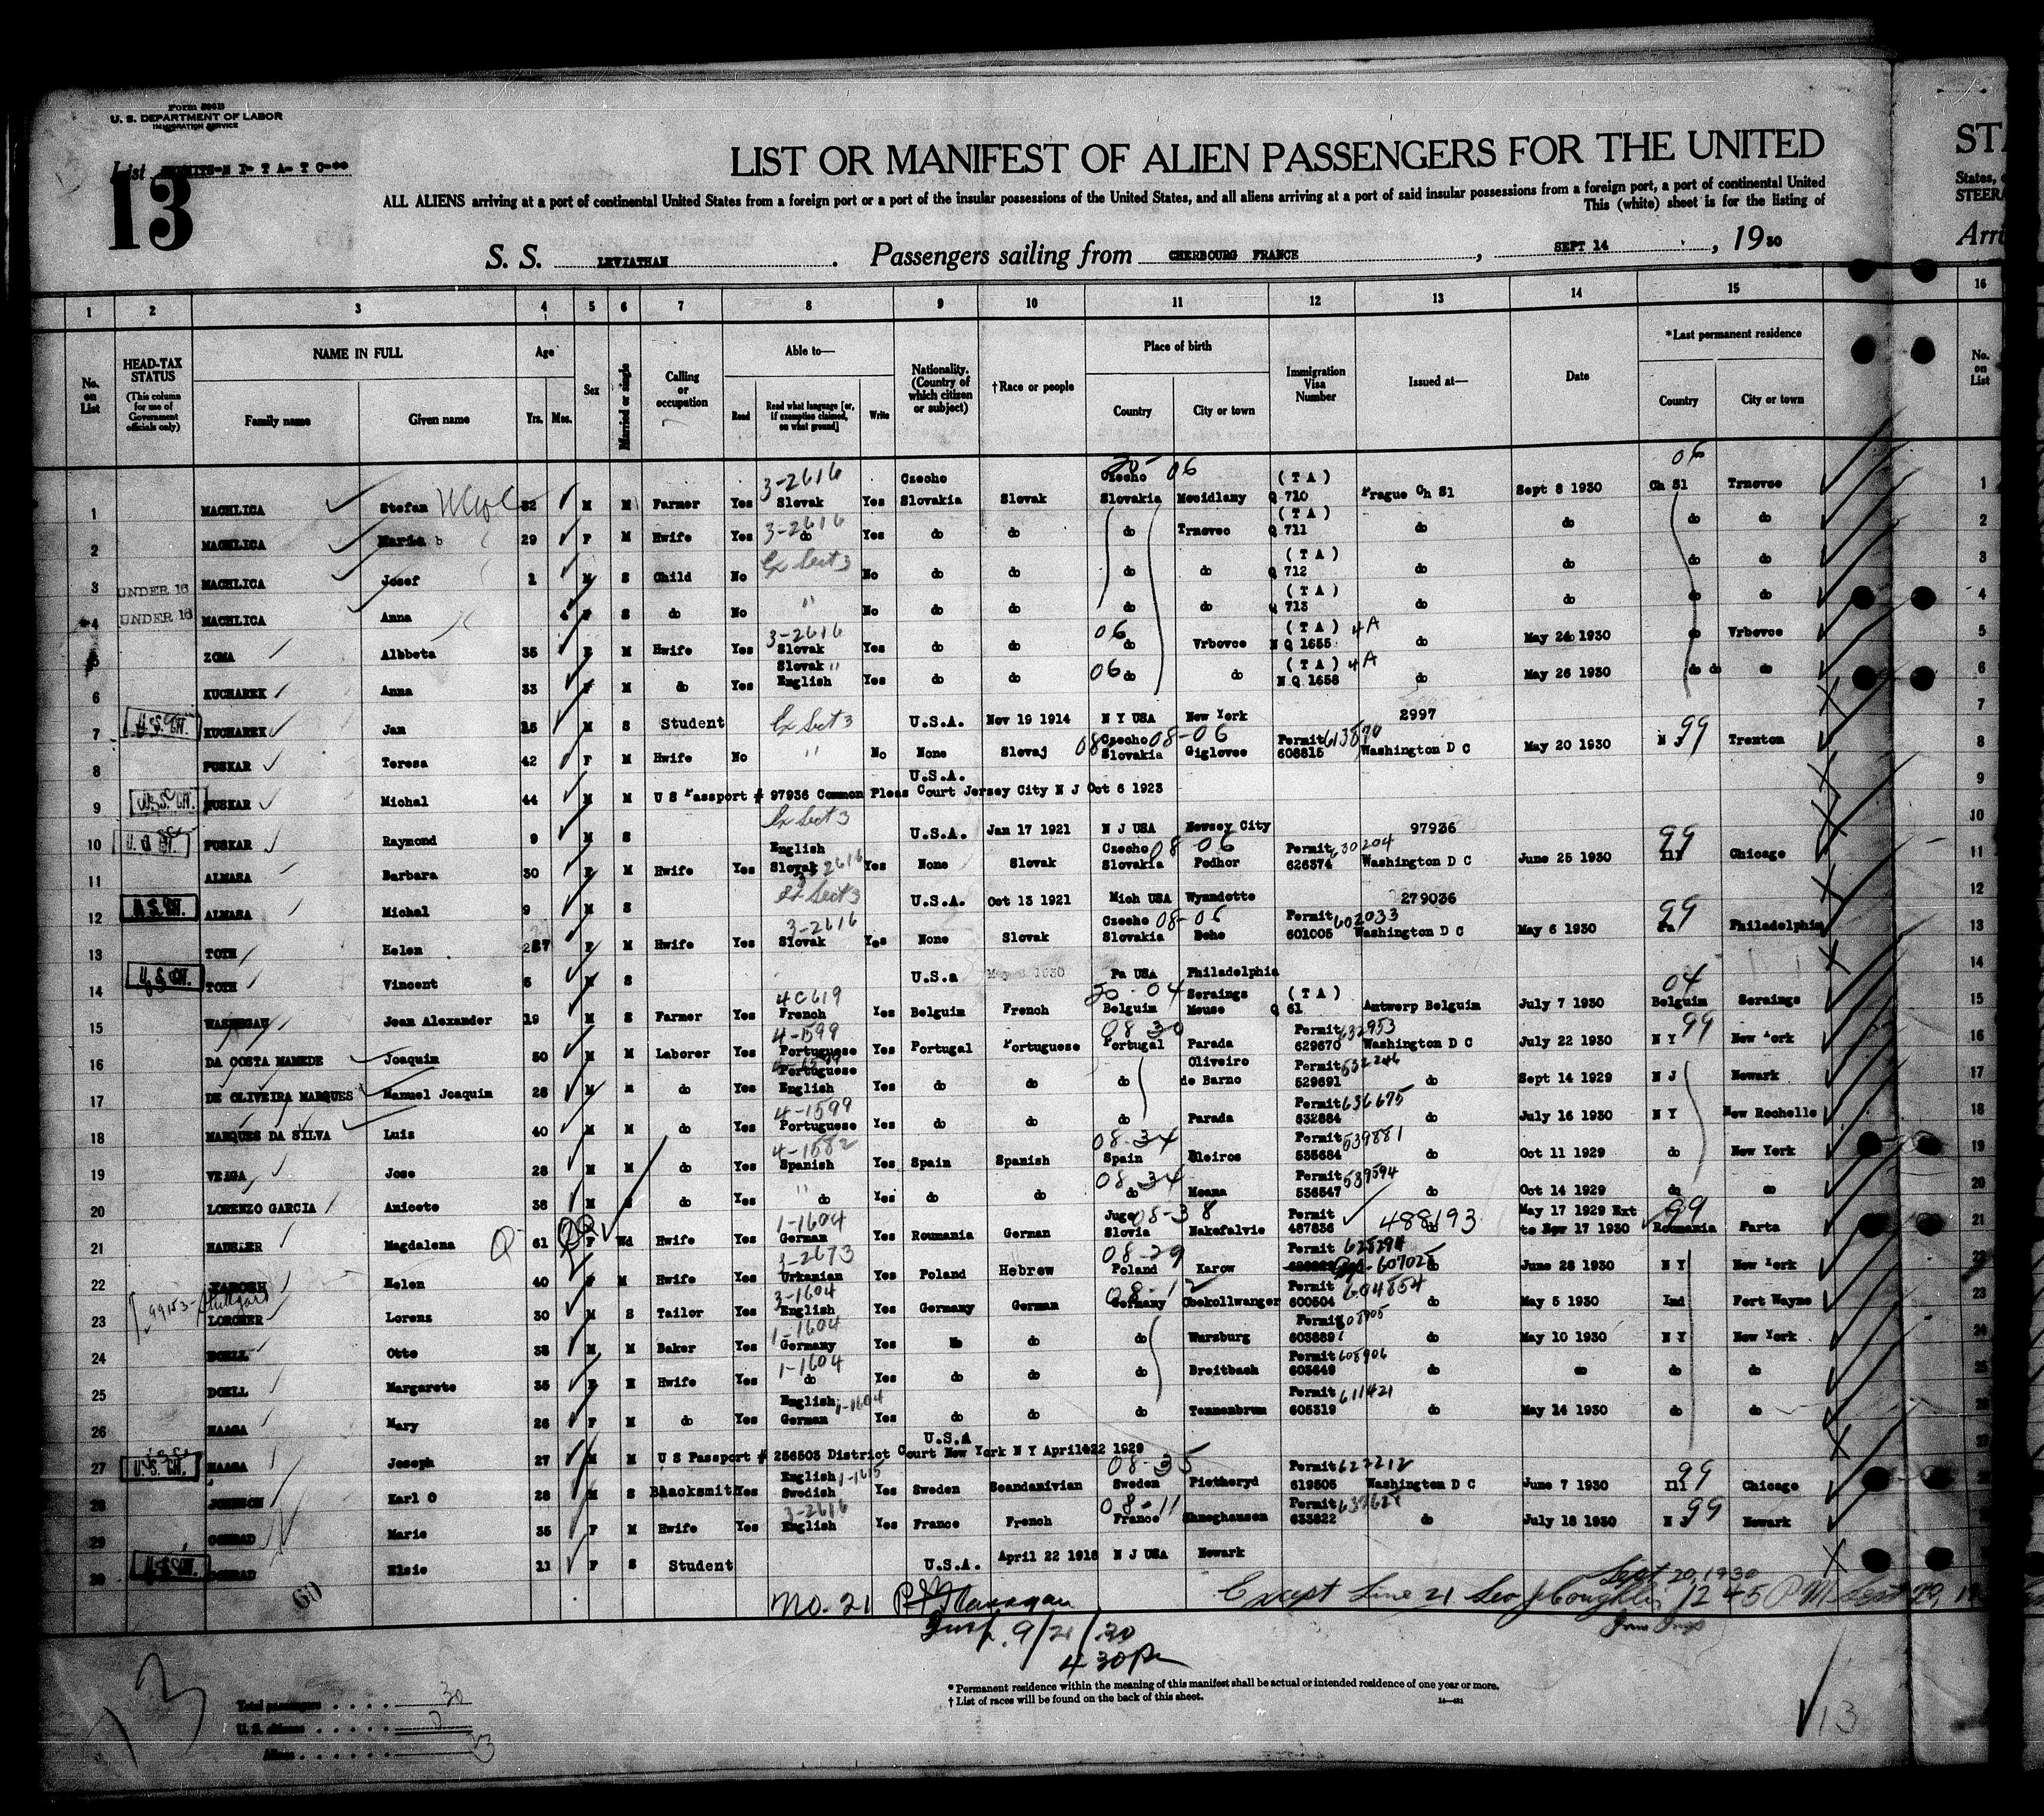 Form 500B
U. S. DEPARTMENT OF LABOR
IMMIGRATION SERVICE
List
13
LIST OR MANIFEST OF ALIEN PASSENGERS FOR THE UNITED
ALL ALIENS arriving at a port of continental United States from a foreign port or a port of the insular possessions of the United States, and all aliens arriving at a port of said insular possessions from a foreign port, a port of continental United
This (white) sheet is for the listing of
S. S. LEVIATHAN. Passengers sailing from CHERBOURG FRANCE, SEPT 14, 1930
STA
States, o
STEERA
Arri
1 2 3 4 5 6 7 8 9 10 11 12 13 14 15 16
No. on List
HEAD-TAX STATUS (This column for use of Government officials only)
NAME IN FULL
Family name Given name
Age Yrs. Mos.
Sex
Married or single
Calling or occupation
Able to—
Read Read what language [or, if exemption claimed, on what ground] Write
Nationality. (Country of which citizen or subject)
†Race or people
Place of birth
Country City or town
Immigration Visa Number
Issued at—
Date
*Last permanent residence
Country City or town
No. on List
1 MACHLICA Stefan 32 M M Farmer Yes 3-2616 Slovak Yes Czecho Slovakia Slovak Czecho Slovakia 06 (TA) Q 710 Prague Ch Sl Sept 8 1930 06 Ch Sl Trnovec 1
2 MACHLICA Maria 29 F M Hwife Yes 3-2616 do Yes do do do Trnovec (TA) Q 711 do do do do 2
3 UNDER 16 MACHLICA Josef M S Child No Ex Sect 3 No do do do do (TA) Q 712 do do do do 3
4 UNDER 16 MACHLICA Anna F S do No " No do do do do (TA) Q 713 do do do do 4
5 ZOMA Albbeta 35 F M Hwife Yes 3-2616 Slovak Yes do do 06 do Vrbovce (TA) 4A N Q 1655 do May 26 1930 do Vrbovce 5
6 KUCHAREK Anna 33 F M do Yes Slovak " English Yes do do 06 do do (TA) 4A N Q 1658 do May 26 1930 do do do 6
7 U.S. CIT. KUCHAREK Jan 15 M S Student Ex Sect 3 U.S.A. Nov 19 1914 N Y USA New York 2997 7
8 PUSKAR Teresa 42 F M Hwife No " No None Slovaj Czecho 08-06 Slovakia Giglovce Permit 613870 608815 Washington D C May 20 1930 99 N J Trenton 8
9 U.S. CIT. PUSKAR Michal 44 M M U.S.A. U S Passport # 97936 Common Pleas Court Jersey City N J Oct 6 1923 9
10 U. S. CIT. PUSKAR Raymond 9 M S Ex Sect 3 U.S.A. Jan 17 1921 N J USA 97936 10
11 ALMASA Barbara 30 F M Hwife Yes English Slovak 2616 Yes None Slovak Czecho 08-06 Slovakia Podhor Permit 630204 626374 Washington D C June 25 1930 99 Ill Chicago 11
12 U.S. CIT. ALMASA Michal 9 M S Ex Sect 3 U.S.A. Oct 13 1921 Mich USA Wyandotte 279036 12
13 TOTH Helen F M Hwife Yes 3-2616 Slovak Yes None Slovak Czecho 08-06 Slovakia Permit 602033 601005 Washington D C May 6 1930 99 Pa Philadelphia 13
14 U.S. CIT. TOTH Vincent M S U.S.a 1930 Pa USA Philadelphia 14
15 Jean Alexander 19 M S Farmer Yes 4C619 French Yes Belguim French 04 Belguim Seraings Meuse (TA) Q 61 Antwerp Belguim July 7 1930 04 Belguim Seraings 15
16 DA COSTA MAMEDE Joaquim M M Laborer Yes 4-1599 Portuguese Yes Portugal Portuguese 08-30 Portugal Parada Permit 632953 629670 Washington D C July 22 1930 99 N Y New York 16
17 DE OLIVEIRA MARQUES Manuel Joaquim 28 M M do Yes 4-1599 Portuguese English Yes do do do Oliveiro de Barno Permit 532246 529691 do Sept 14 1929 N J Newark 17
18 MARQUES DA SILVA Luis 40 M M do Yes 4-1599 Portuguese Yes do do do Parada Permit 636675 632684 do July 16 1930 N Y New Rochelle 18
19 VEIGA Jose 28 M M do Yes 4-1582 Spanish Yes Spain Spanish 08-34 Spain Permit 539881 535684 do Oct 11 1929 do New York 19
20 LORENZO GARCIA Aniceto 38 M S do Yes " do Yes do do 08-34 do Permit 539594 536547 do Oct 14 1929 do do 20
21 Magdalena 61 F Wd Hwife Yes 1-1604 German Yes Roumania German Jugo 08-38 Slovia Nakofalvie Permit 487836 488193 do May 17 1929 Ext to Nov 17 1930 99 Roumania Parta 21
22 Helen 40 F M Hwife Yes 3-2673 Urkanian Yes Poland Hebrew 08-29 Poland Karow Permit do June 28 1930 N Y New York 22
23 LORCHER Lorenz 30 M S Tailor Yes 3-1604 English Yes Germany German 08-12 Germany Obekollwanger Permit 604854 600504 do May 5 1930 Ind Fort Wayne 23
24 DOELL Otto 38 M M Baker Yes 1-1604 Germany Yes do do Warzburg Permit do May 10 1930 N Y New York 24
25 DOELL Margarete 35 F M Hwife Yes 1-1604 do Yes do do do Breitbach Permit 608906 603649 do do do do 25
26 HAAGA Mary 26 F M do Yes English 1-1604 German Yes do do do Tennenbrum Permit 611421 605319 do May 14 1930 do do 26
27 U.S. CIT. HAAGA Joseph 27 M M U.S.A U S Passport # 256503 District Court New York N Y April 22 1929
28 JOHNSON Karl O 28 M S Blacksmith Yes English 1-1615 Swedish Yes Sweden Scandanivian 08-35 Sweden Pietheryd Permit 619505 Washington D C June 7 1930 99 Ill Chicago
29 CONRAD Marie 35 F M Hwife Yes 3-2616 English Yes France French 08-11 France Permit 633822 do July 18 1930 99 N J Newark
30 U.S. CIT. CONRAD Elsie 11 F S Student U.S.A. April 22 1918 N J USA Newark
No. 21
Insp. 9/21/30
4 30 Pm
Sept 20, 1930
Except Line 21 Leo J Coughlin 12 45 PM Sept 20, 19
* Permanent residence within the meaning of this manifest shall be actual or intended residence of one year or more.
† List of races will be found on the back of this sheet.
Total passengers 30
U. S. citizens
Aliens 23
13